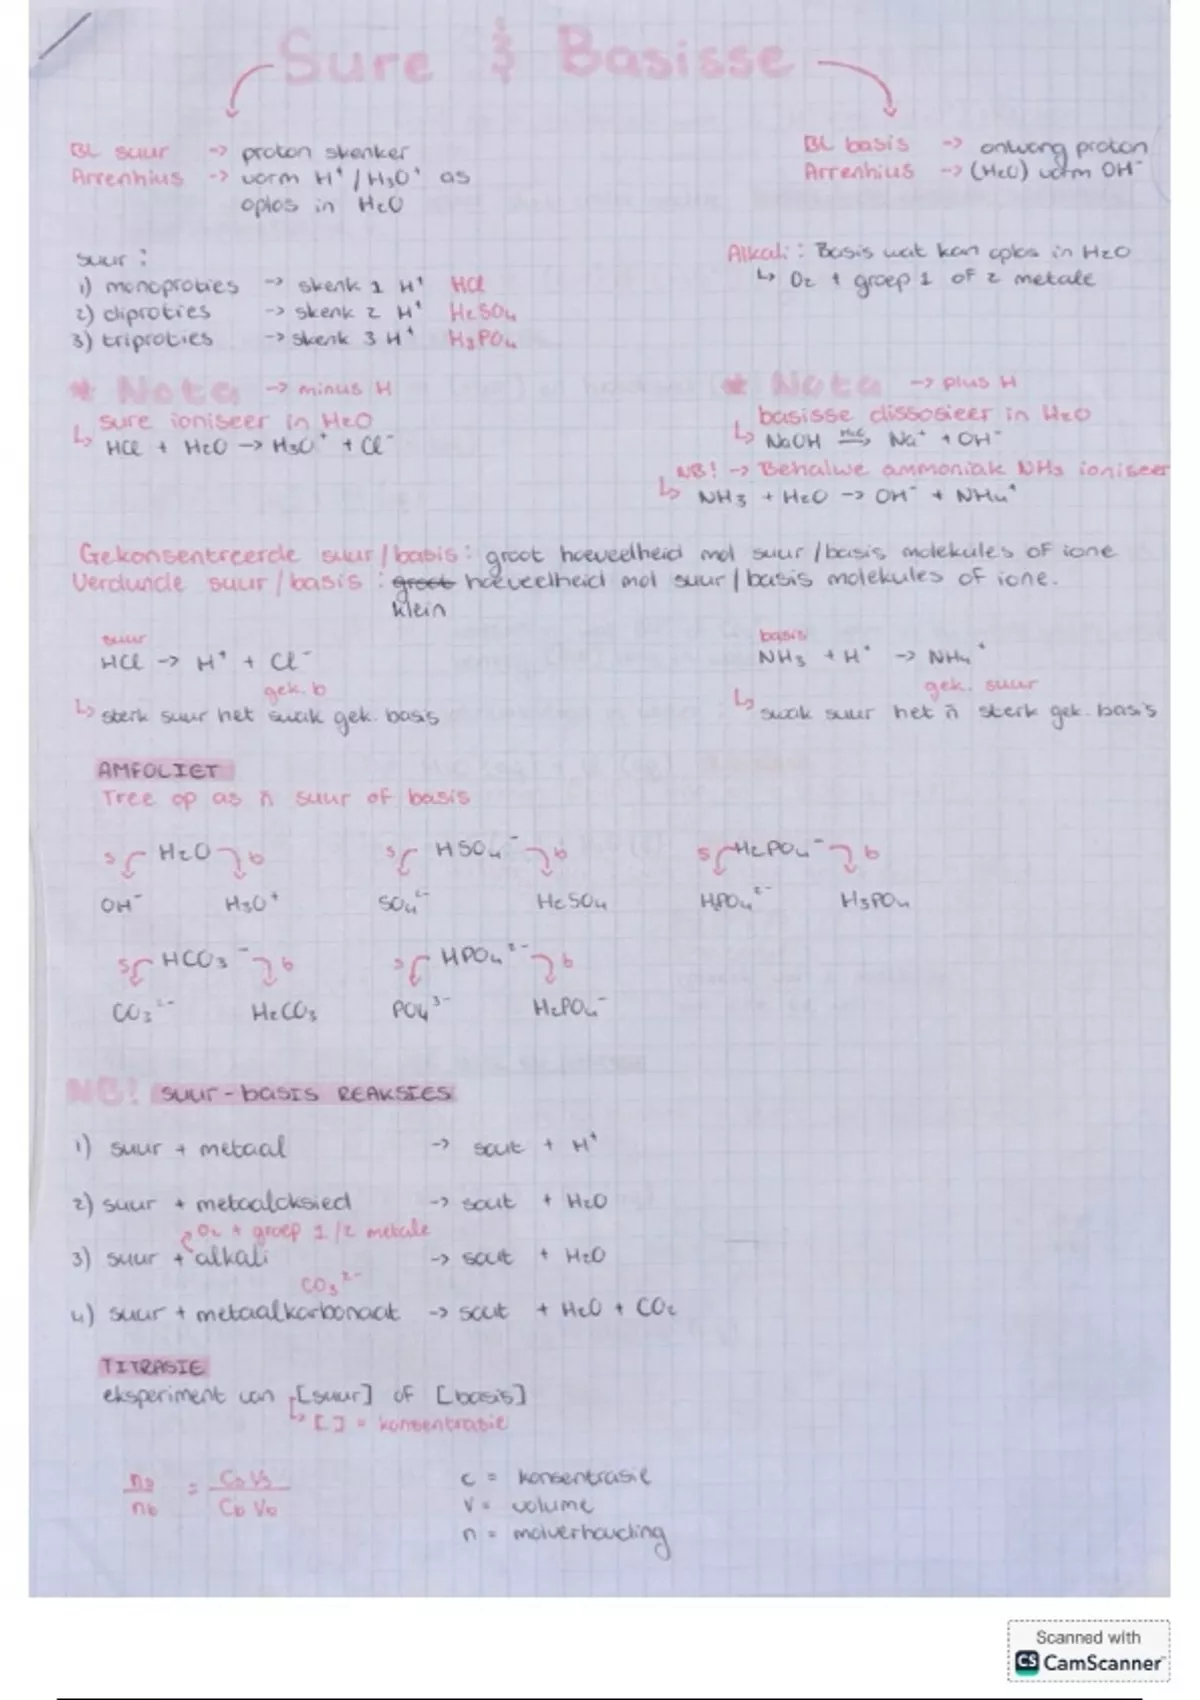 Sure & Basisse
BL suur -> proton skenker
Arrenhius -> vorm H⁺ / H₃O⁺ as
oplos in H₂O
BL basis -> ontvang proton
Arrenhius -> (H₂O) vorm OH⁻
suur :
1) monoproties -> skenk 1 H⁺ HCl
2) diproties -> skenk 2 H⁺ H₂SO₄
3) triproties -> skenk 3 H⁺ H₃PO₄
Alkali : Basis wat kan oplos in H₂O
↳ O₂ + groep 1 of 2 metale
* Nota -> minus H
↳ sure ioniseer in H₂O
HCl + H₂O -> H₃O⁺ + Cl⁻
* Nota -> plus H
basisse dissosieer in H₂O
↳ NaOH H₂O -> Na⁺ + OH⁻
NB! -> Behalwe ammoniak NH₃ ioniseer
↳ NH₃ + H₂O -> OH⁻ + NH₄⁺
Gekonsentreerde suur / basis : groot hoeveelheid mol suur / basis molekules of ione
Verdunde suur / basis : groot hoeveelheid mol suur / basis molekules of ione.
klein
suur
HCl -> H⁺ + Cl⁻
gek. b
↳ sterk suur het swak gek. basis
basis
NH₃ + H⁺ -> NH₄⁺
gek. suur
↳ swak suur het ñ sterk gek. basis
AMFOLIET
Tree op as ñ suur of basis
s H₂O b
OH⁻ H₃O⁺
s HSO₄⁻ b
SO₄²⁻ H₂SO₄
s H₂PO₄⁻ b
HPO₄²⁻ H₃PO₄
s HCO₃⁻ b
CO₃²⁻ H₂CO₃
s HPO₄²⁻ b
PO₄³⁻ H₂PO₄⁻
NB! suur-basis REAKSIES
1) suur + metaal -> sout + H⁺
2) suur + metaaloksied -> sout + H₂O
O₂ + groep 1/2 metale
3) suur + alkali -> sout + H₂O
CO₃²⁻
4) suur + metaalkarbonaat -> sout + H₂O + CO₂
TITRASIE
eksperiment van [suur] of [basis]
↳ [ ] = konsentrasie
na/nb = CaVa/CbVb
c = konsentrasie
V = volume
n = molverhouding
Scanned with
CS CamScanner